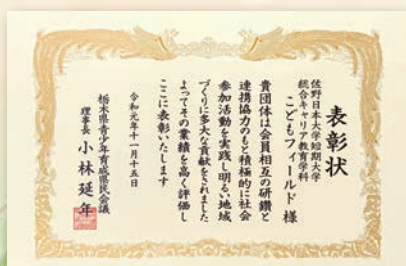 表彰状
佐野日本大学短期大学
総合キャリア教育学科
こどもフィールド 様
貴団体は会員相互の研鑽と
連携協力のもと積極的に社会
参加活動を実践し明るい地域
づくりに多大な貢献をされました
よってその業績を高く評価し
ここに表彰いたします
令和元年十一月十五日
栃木県青少年育成県民会議
理事長 小林延年